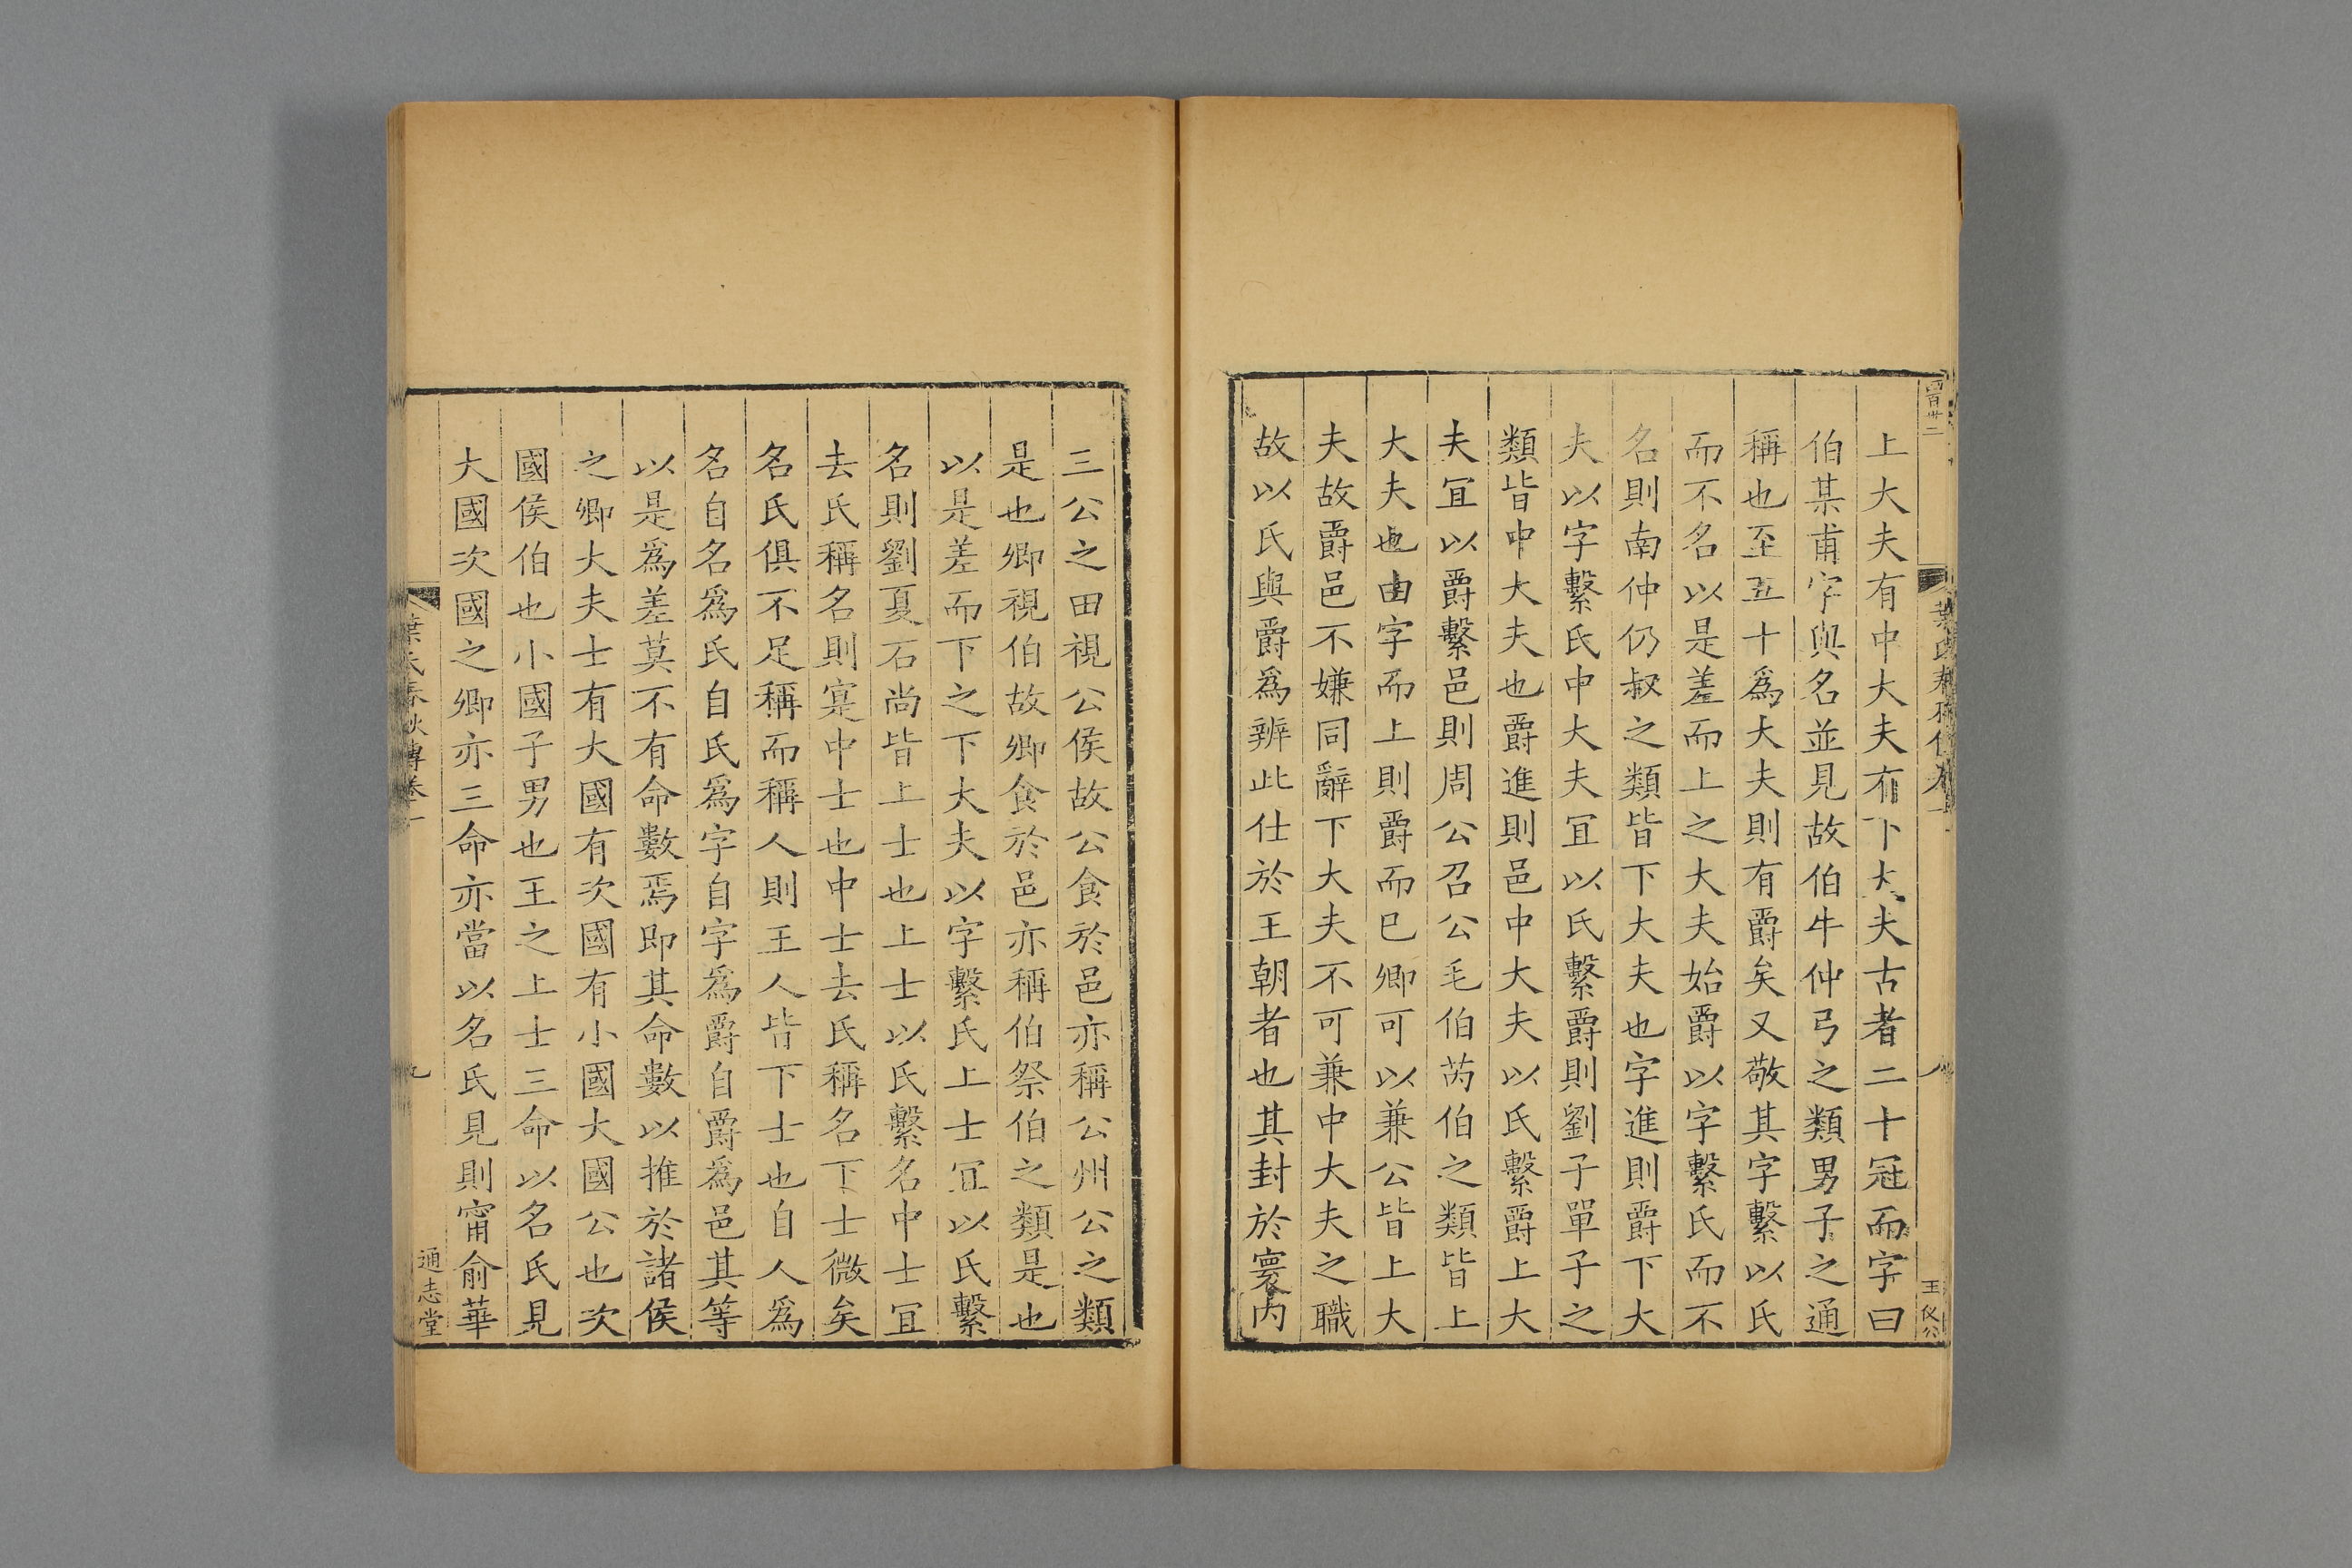 上大夫有中大夫有下大夫古者二十冠而字曰
伯某甫字與名並見故伯牛仲弓之類男子之通
稱也至五十爲大夫則有爵矣又敬其字繫以氏
而不名以是差而上之大夫始爵以字繫氏而不
名則南仲仍叔之類皆下大夫也字進則爵下大
夫以字繫氏中大夫冝以氏繫爵則劉子單子之
類皆中大夫也爵進則邑中大夫以氏繫爵上大
夫冝以爵繫邑則周公召公毛伯芮伯之類皆上
大夫也由字而上則爵而已卿可以兼公皆上大
夫故爵邑不嫌同辭下大夫不可兼中大夫之職
故以氏與爵爲辨此仕於王朝者也其封於寰内
三公之田視公侯故公食於邑亦稱公州公之類
是也卿視伯故卿食於邑亦稱伯祭伯之類是也
以是差而下之下大夫以字繫氏上士冝以氏繫
名則劉夏石尚皆上士也上士以氏繫名中士冝
去氏稱名則寔中士也中士去氏稱名下士微矣
名氏俱不足稱而稱人則王人皆下士也自人爲
名自名爲氏自氏爲字自字爲爵自爵爲邑其等
以是爲差莫不有命數焉即其命數以推於諸侯
之卿大夫士有大國有次國有小國大國公也次
國侯伯也小國子男也王之上士三命以名氏見
大國次國之卿亦三命亦當以名氏見則甯俞華
葉氏春秋傳卷一
九
通志堂